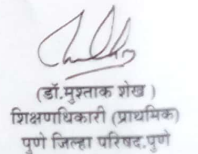 (डॉ.मुश्ताक शेख )
शिक्षणाधिकारी (प्राथमिक)
पुणे जिल्हा परिषद,पुणे